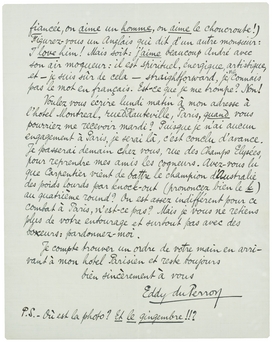 fiancée, on aime un homme, on aime le choucroute!)
Figurez-vous un Anglais qui dit d'un autre monsieur:
I love him! Mais soit: j'aime beaucoup André avec
son air moqueur: il est spirituel, énergique, artistique,
et — je suis sûr de cela — straightforward, je connais
pas le mot en français. Est-ce que je me trompe? Non!
Voulez vous écrire lundi matin à mon adresse à
l'hotel Montréal, rue Paris, quand vous
pourriez me recevoir mardi? Puisque je n'ai aucun
engagement à Paris, je serai là, c'est conclu, d'avance.
Je passerai demain chez vous, rue des Champs Elysées,
pour reprendre mes amis les cogneurs. Avez-vous lu
que Carpentier vient de battre le champion d'Australie
des poids lourds par knock-out (prononcez bien le k)
au quatrième round? On est assez indifférent pour ce
combat à Paris, n'est-ce pas? Mais je vous ne retiens
plus de votre entourage et surtout pas avec des
boxeurs: pardonnez-moi.
Je compte trouver un ordre de votre main en arri-
vant à mon hotel Parisien et reste toujours
bien sincèrement à vous
Eddy du Perron
P.S. – Où est la photo? Et le gingembre!!?